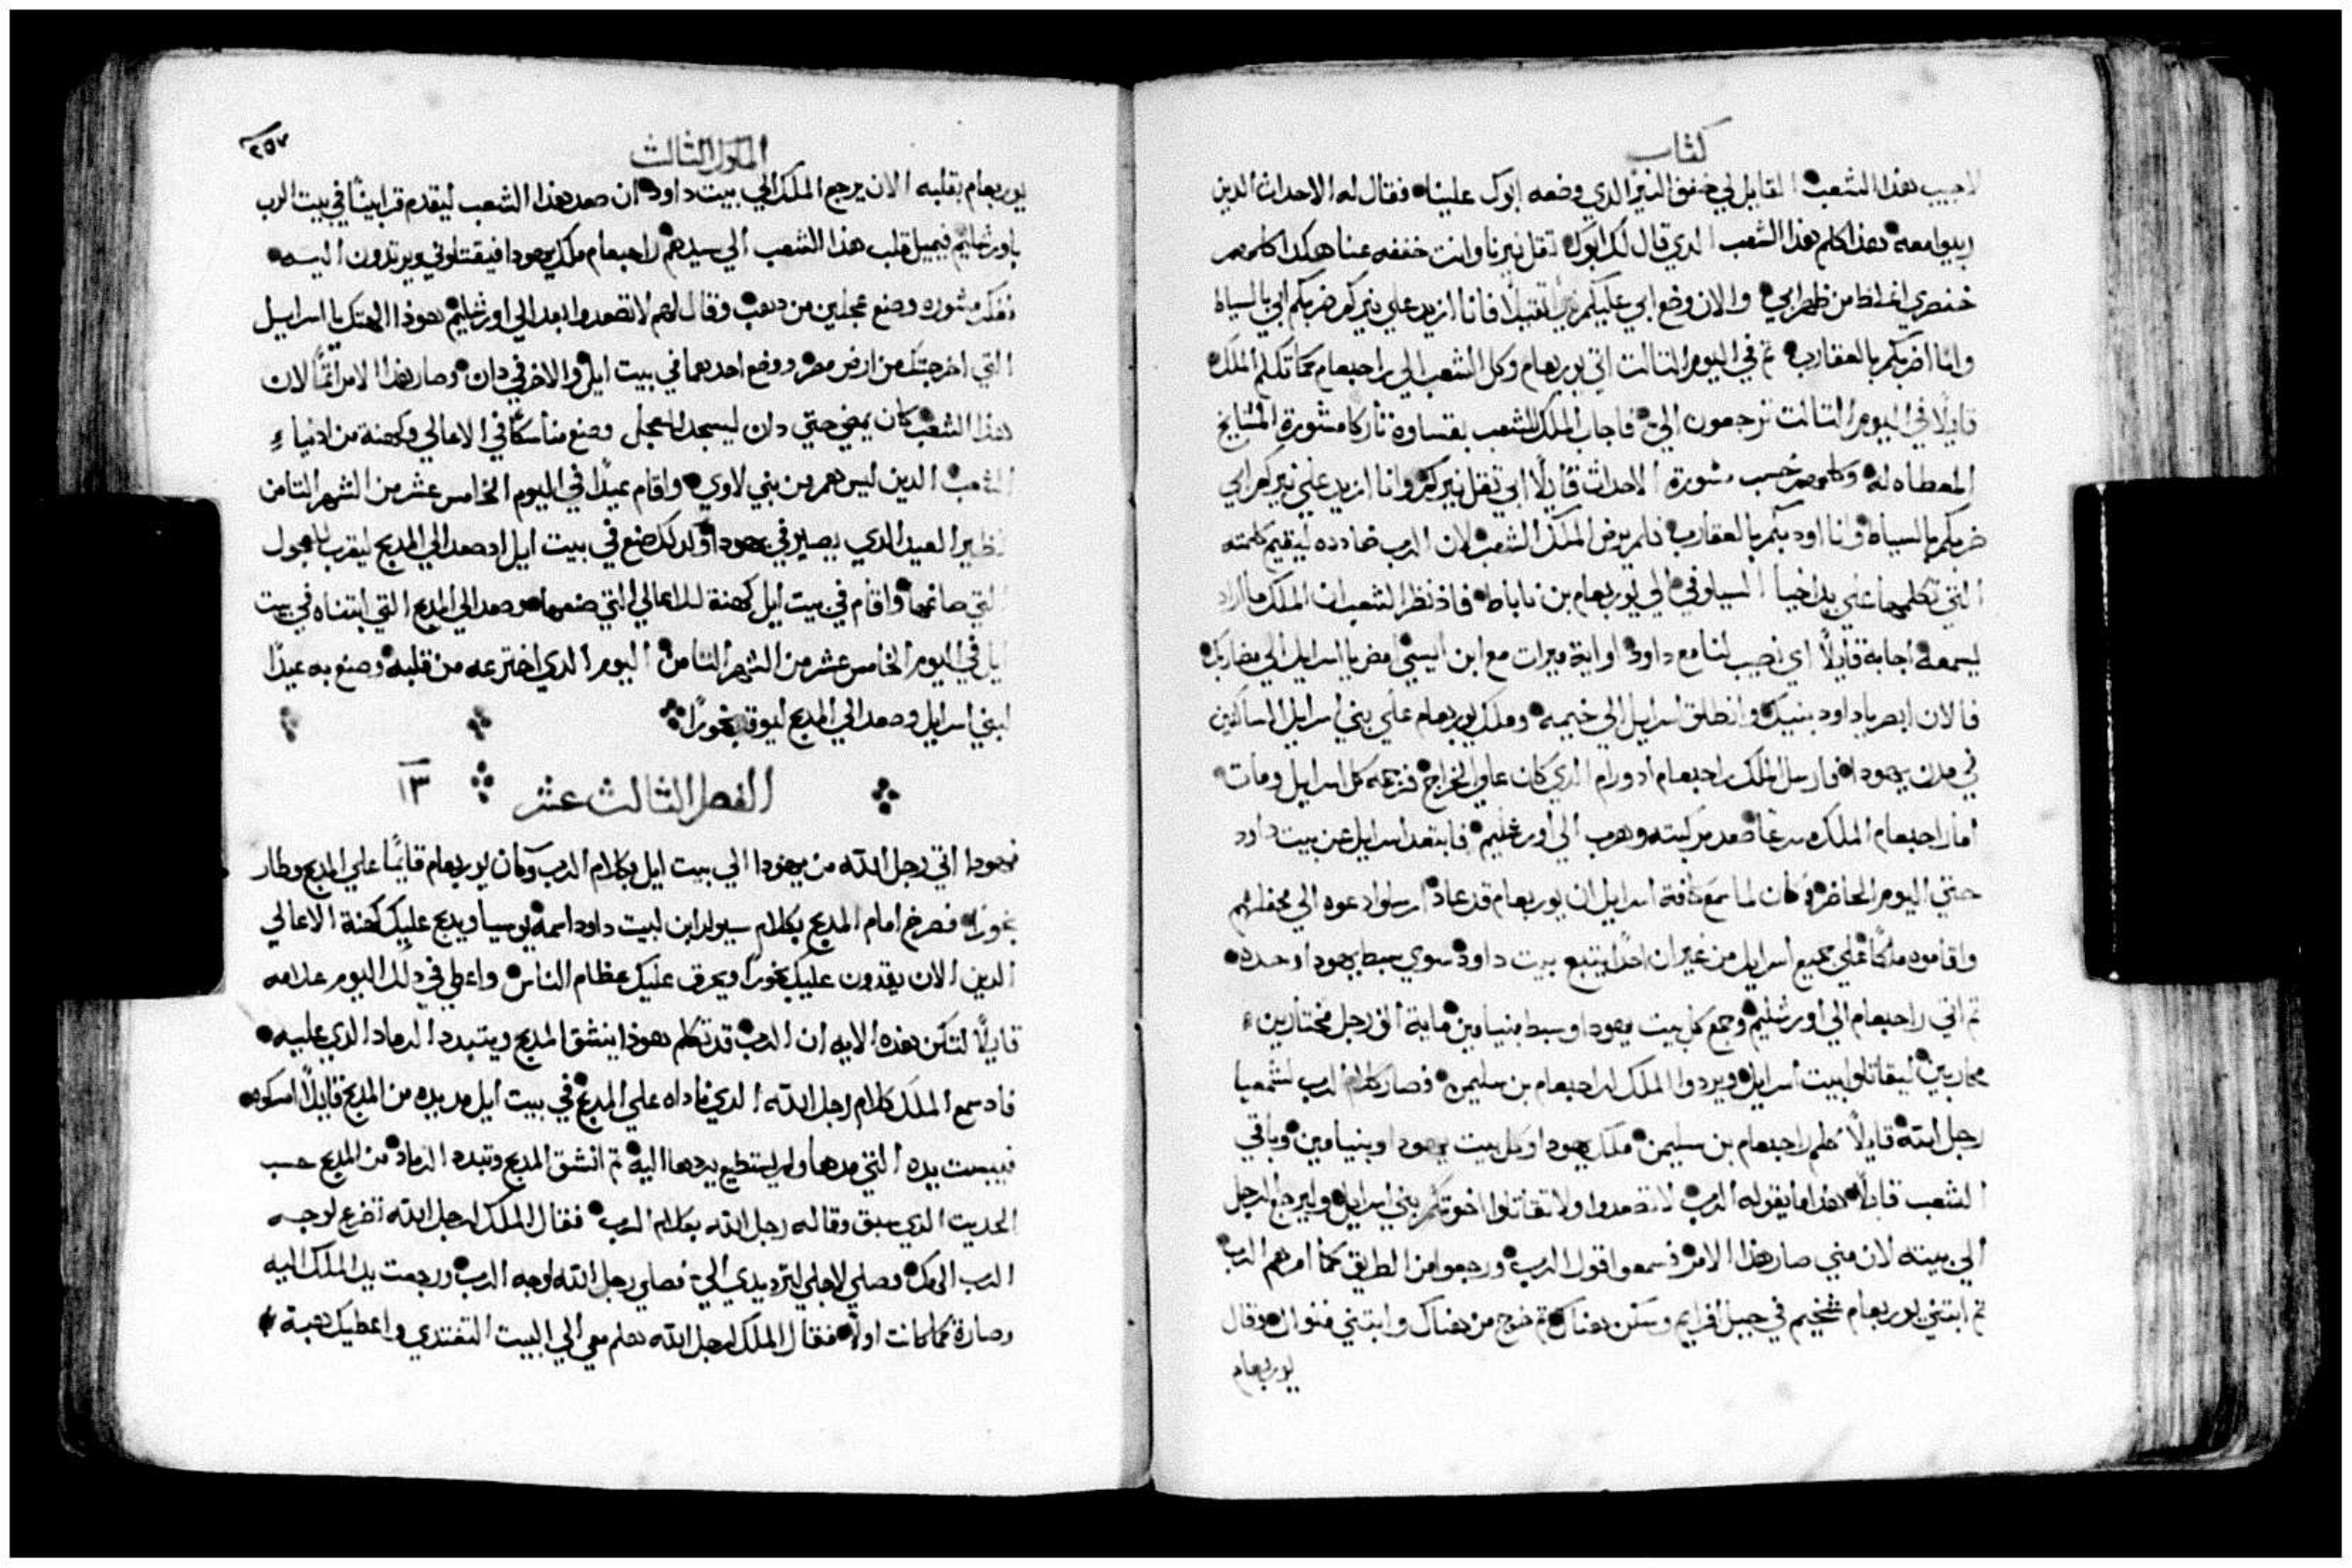 كتاب
لاجيب هذا الشعب القايل لي خفف النير الذي وضعه ابوك علينا فقال له الاحداث الدين
ربيوا معه هذا كلم هذا الشعب الدي قال لك ابوك تقل نيرنا وانت خففه عنا هكدا كلمهم
خنصري اغلظ من ظهر ابي والان وضع ابي عليكم نيرًا تقيلًا فانا ازيد علي نيركم ضربكم ابي بالسياط
وانا اضربكم بالعقارب تم في اليوم التالت اتي يوربعام وكل الشعب الي راحبعام كما تكلم الملك
قايلًا في اليوم التالت ترجعون الي فاجاب الملك للشعب بقساوة تاركا مشورة المشايخ
المعطاه له وكلمهم حسب مشورة الاحداث قايلًا ابي تقل نيركم وانا ازيد علي نيركم ابي
ضربكم بالسياط وانا اودبكم بالعقارب فلم يرض الملك الشعب لان الرب ضادده ليقيم كلمته
التي تكلمها علي يد اخيا السيلوني الي يوربعام بن ناباط فاذ نظر الشعب ان الملك ما اراد
ليسمعه اجابه قايلًا اي نصيب لنا مع داود او اية ميرات مع ابن ايسي امض يا اسرايل الي مضاربك
فالان ابصر يا داود بنيك وانطلق اسرايل الي خيمه وملك يوربعام علي بني اسرايل الساكنين
في مدن يهودا فارسل الملك راحبعام ادورام الدي كان علي الخراج فرجمه كل اسرايل ومات
اما راحبعام الملك مسرعًا صعد مركبته وهرب الي اورشليم فابتعد اسرايل عن بيت داود
حتي اليوم الحاضر وكان لما سمع كافة اسرايل ان يوربعام قد عاد ارسلوا دعوه الي محفلهم
واقاموه ملكًا علي جميع اسرايل من غير ان احدًا يتبع بيت داود سوي سبط يهودا وحده
تم اتي راحبعام الي اورشليم وجمع كل بيت يهودا وسبط بنيامين ماية الف رجل مختارين
محاربين ليقاتلوا بيت اسرايل ويردوا الملك لراحبعام بن سليمن فصار كلام الرب لشمعيا
رجل الله قايلًا كلم راحبعام بن سليمن ملك يهودا وكل بيت يهودا وبنيامين وباقي
الشعب قايلًا هذا ما يقوله الرب لا تصعدوا ولا تقاتلوا اخوتكم بني اسرايل وليرجع الرجل
الي بيته لان مني صار هذا الامر فسمعوا قول الرب ورجعوا من الطريق كما امرهم الرب
تم ابتني يوربعام شخيم في جبل افرايم وسكن هناك تم خرج من هناك وابتني فنوال وقال
يوربعام
الملوك الثالث
٢٥٧
يوربعام بقلبه الان يرجع الملك الي بيت داود ان صعد هذا الشعب ليقدم قرابينًا في بيت الرب
باورشليم فيميل قلب هذا الشعب الي سيدهم راحبعام ملك يهودا فيقتلوني ويرتدون اليه
ففكر مشوره وصنع عجلين من دهب وقال لهم لا تصعدوا بعد الي اورشليم هوذا الهتك يا اسرايل
التي اخرجتك من ارض مصر ووضع احدهما في بيت ايل والاخر في دان وصار هذا الامر اتمًا لان
هذا الشعب كان يمضي حتي دان ليسجد للعجل وصنع مناسكًا في الاعالي وكهنة من ادنياء
الشعب الدين ليس هم من بني لاوي واقام عيدًا في اليوم الخامس عشر من الشهر التامن
نظير العيد الدي يصير في يهودا وكدلك صنع في بيت ايل اد صعد الي المدبح ليقرب للعجول
التي صانعها واقام في بيت ايل كهنة للاعالي التي صنعها وصعد الي المدبح التي ابتناه في بيت
ايل في اليوم الخامس عشر من الشهر التامن اليوم الدي اخترعه من قلبه وصنع به عيدًا
لبني اسرايل وصعد الي المدبح ليوقد بخورًا
الفصل الثالث عشر ١٣
فهودا اتي رجل الله من يهودا الي بيت ايل بكلام الرب وكان يوربعام قايمًا علي المدبح وطار
بخورًا فصرخ امام المدبح بكلام سيولد ابن لبيت داود اسمه يوسيا ويدبح عليك كهنة الاعالي
الدين الان يقدون عليك بخورًا ويحرق عليك عظام الناس واعطي في دلك اليوم علامه
قايلًا لتكن هذه الايه ان الرب قد تكلم هودا ينشق المدبح ويتبدد الرماد الدي عليه
فاد سمع الملك كلام رجل الله الدي ناداه علي المدبح في بيت ايل مد يده من المدبح قايلًا امسكوه
فيبست يده التي مدها ولم يستطيع يردها اليه تم انشق المدبح وتبدد الرماد من المدبح حسب
الحديت الدي سبق وقاله رجل الله بكلام الرب فقال الملك لرجل الله تضرع لوجه
الرب الهك وصلي لاجلي لترد يدي الي فصلي رجل الله لوجه الرب ورجعت يد الملك اليه
وصارة كما كانت اولًا فقال الملك لرجل الله هلم معي الي البيت التغتدي واعطيك هبة